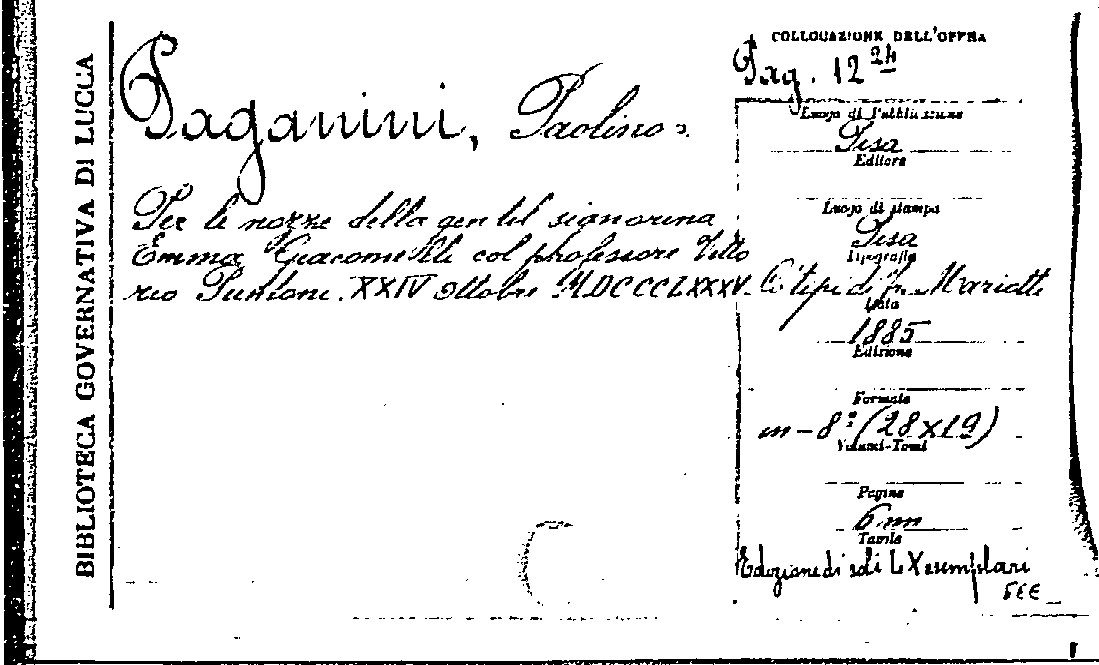 BIBLIOTECA GOVERNATIVA DI LUCCA
Paganini, Paolino.
Per le nozze della gentil signorina
Emma Giacomelli col professore Vitto
rio Puntoni. XXIV Ottobre MDCCCLXXXV.
COLLOCAZIONE DELL'OPERA
Pag. 12 24
Luogo di Pubblicazione
Pisa
Editore
Luogo di stampa
Pisa
Tipografia
Co' tipi di Fr. Mariotti
Data
1885
Edizione
Formato
in-8° (28x19)
Volumi-Tomi
Pagine
6 nn
Tavole
Edizione di soli LX esemplari